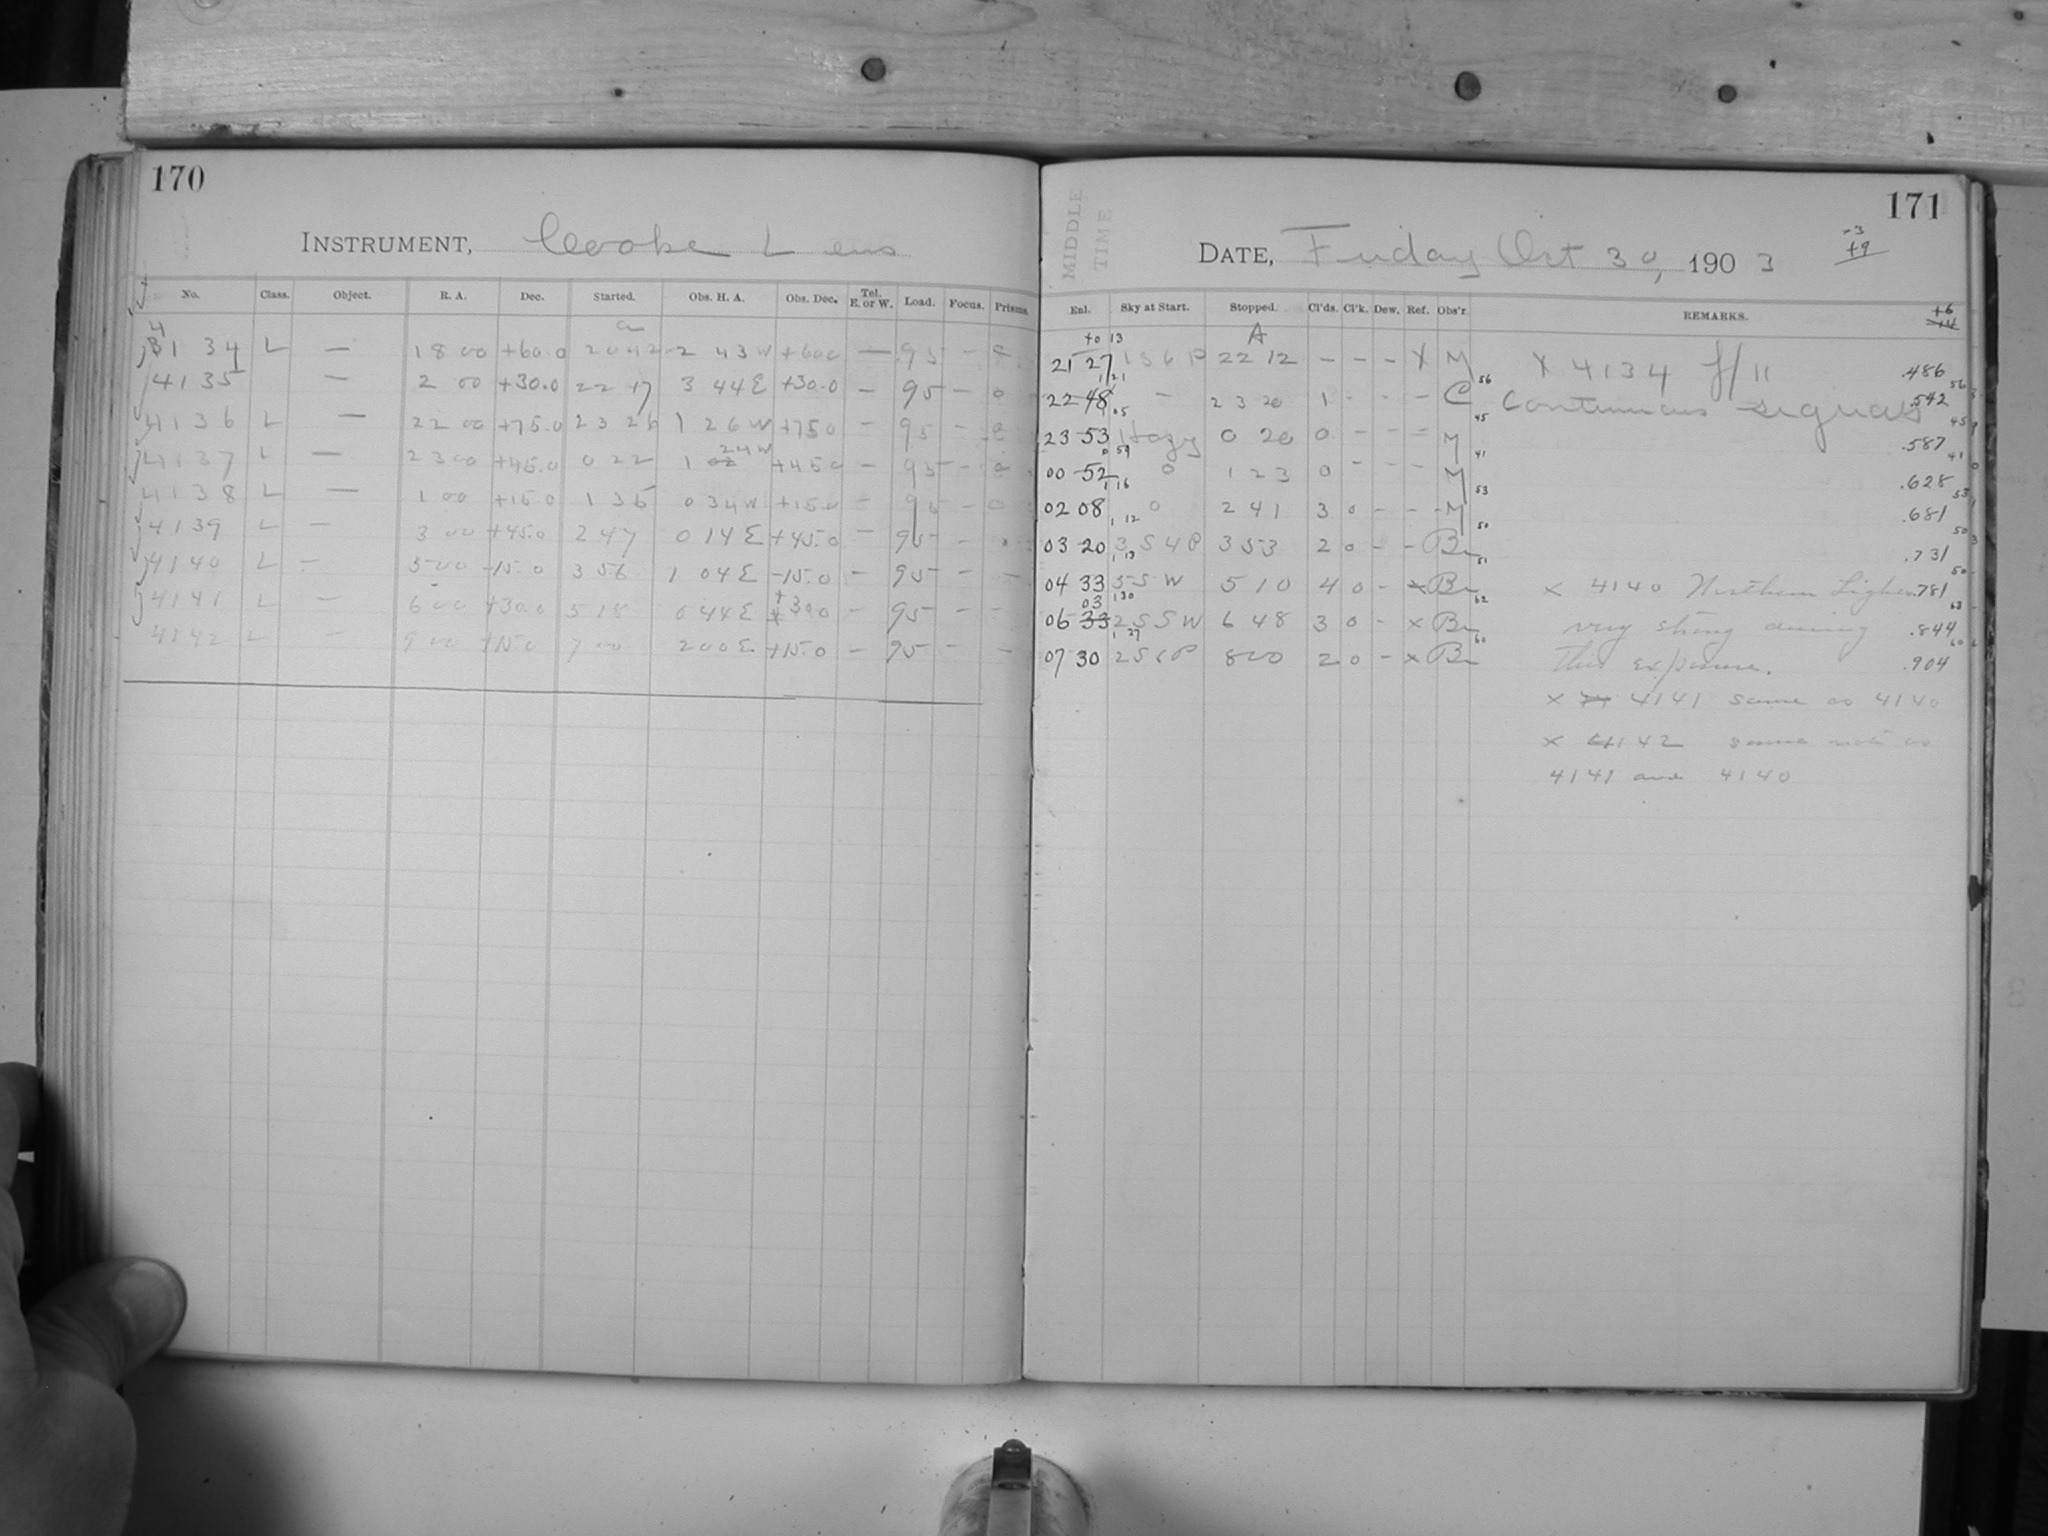 170
INSTRUMENT, Cooke Lens
No. Class. Object. R. A. Dec. Started. Obs. H. A. Obs. Dec. Tel. E. or W. Load. Focus. Prisms.
a
4134 L — 18 00 +60.0 20 42 2 43 W +60.0 — 95 — 0
4135 — 2 00 +30.0 22 17 3 44 E +30.0 — 95 — 0
4136 L — 22 00 +75.0 23 26 1 26 W +75.0 — 95 —
24 W
4137 L — 23 00 +45.0 0 22 1 02 +45.0 — 95 —
4138 L — 1 00 +15.0 1 35 0 34 W +15.0 — 95 — 0
4139 L — 3 00 +45.0 2 47 0 14 E +45.0 — 95 —
4140 L — 5 00 -15.0 3 56 1 04 E -15.0 — 95 — —
4141 L — 6 00 +30.0 5 18 0 44 E +30.0 — 95 — —
4142 L — 9 00 +15.0 7 00 2 00 E +15.0 — 95 — —
171
MIDDLE TIME
DATE, Friday Oct 30, 1903
-3
+9
Enl. Sky at Start. Stopped. Cl'ds. Cl'k. Dew. Ref. Obs'r. REMARKS.
+6
to 13 A
21 27 1 S 6 P 22 12 — — — X M X 4134 f/11 .486
1 21 56 56
22 48 — 23 20 1 - - - C Continuous signals .542
1 05 45 45
23 53 Hazy 0 20 0 - - = M .587
0 59 41 41
00 52 0 1 23 0 - - - M .628
1 16 53 53
02 08 0 2 41 3 0 - - M .681
1 12 50 50
03 20 3 S 4 P 3 53 2 0 - - Br .731
1 13 51 50
04 33 5 S W 5 10 4 0 - x Br x 4140 Northern Lights .781
03 1 30 62 63
06 33 2 S S W 6 48 3 0 - x Br very strong during .844
1 27 60 60
07 30 8 00 2 0 - x Br this exposure. .904
x 4141 same as 4140
x 4142 same note as
4141 and 4140